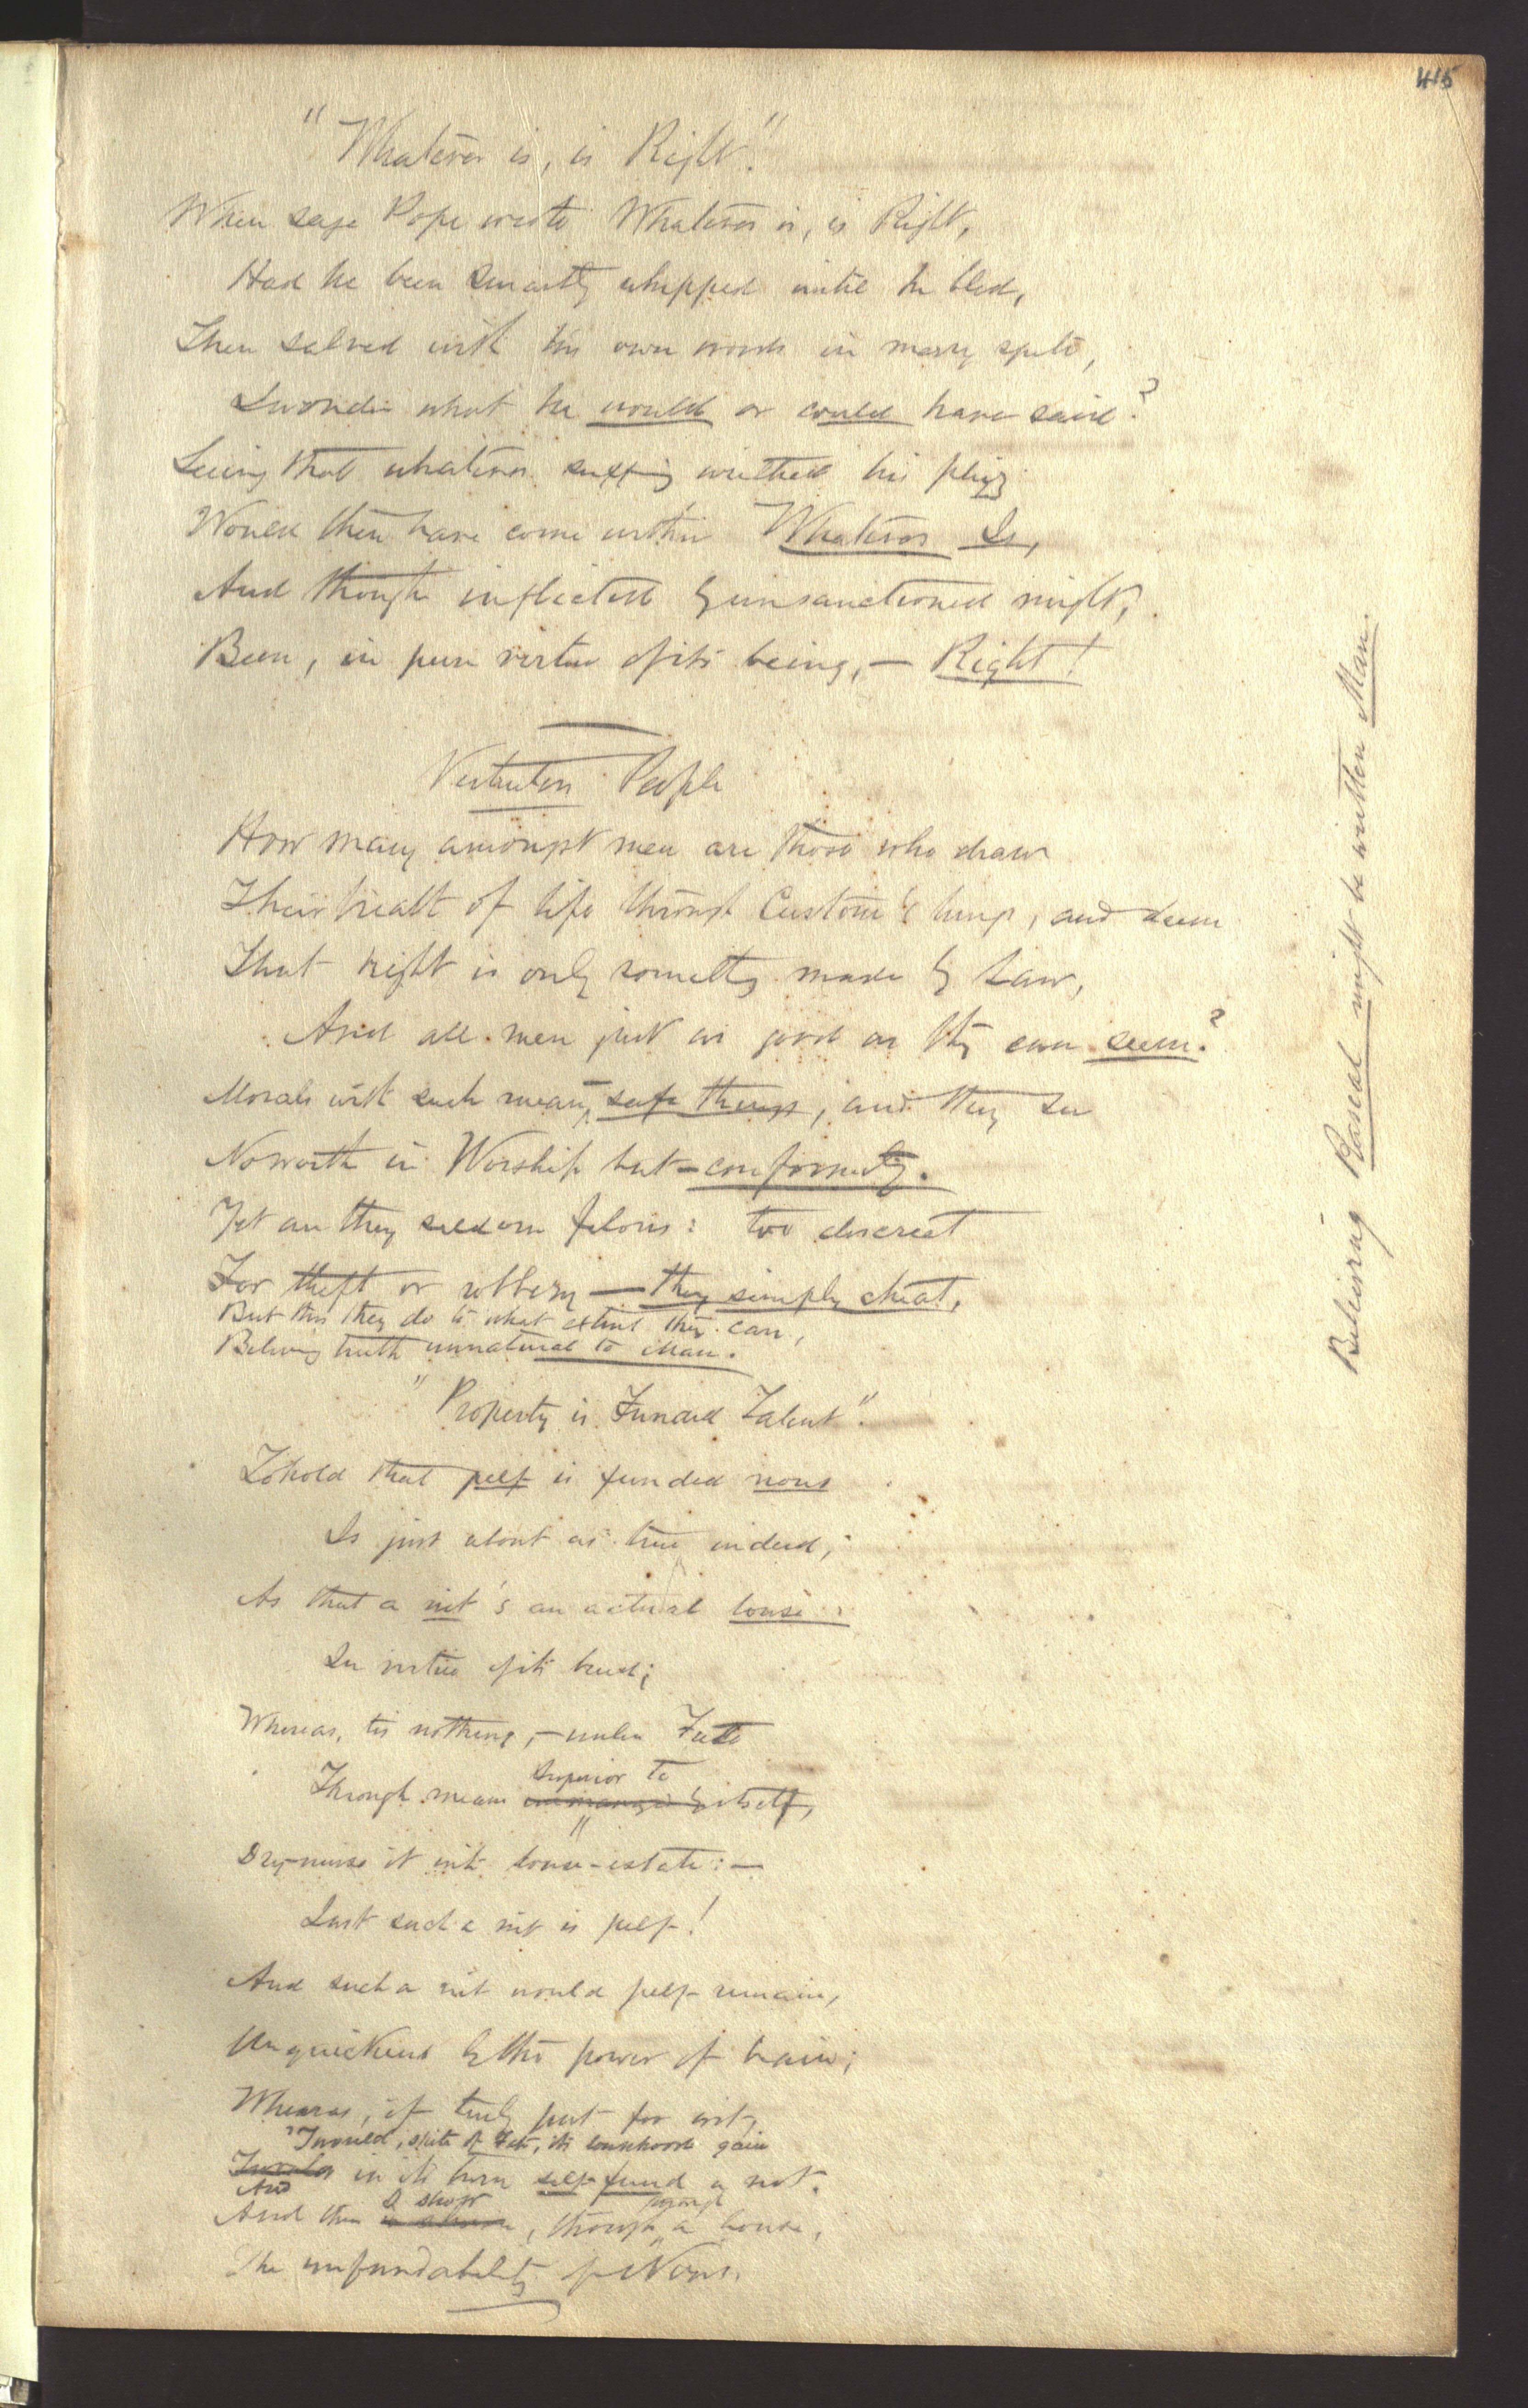 415
"Whatever is, is Right".
When sage Pope wrote Whatever is, is Right,
Had he been smartly whipped until he bled,
Then salved with his own words in merry spite,
I wonder what he would or could have said?
Seeing that whatever suffering writhed his phiz
Would then have come within Whatever Is,
And though inflicted by unsanctioned might,
Been, in pure virtue of its being, — Right!
Virtueless People
How many amongst men are those who draw
Their breath of life through Custom's lungs, and deem
That right is only something made by Law,
And all men just as good as they can seem?
Morals with such mean, safe things, and they see
No worth in Worship but — conformity.
Yet are they seldom felons: too discreet
For theft or robbery — they simply cheat,
But this they do to what extent they can,
Believing truth unnatural to Man.
"Property is Funded Talent".
To hold that pelf is funded nous
Is just about as true indeed,
As that a nit's an actual louse
In virtue of its breed;
Whereas, tis nothing, — unless Fate
Superior to
Through means itself,
Dry-nurse it into louse-estate: —
Just such a nit is pelf!
And such a nit would pelf remain,
Unquickened by the power of brain;
Whereas, if truly put for wit,
'Twould, spite of Fate, its lousehood gain
And in its turn self-fund a nit.
I show
through
And thus, through a louse,
The unfundability of Nous.
Believing Rascal might be written Man.